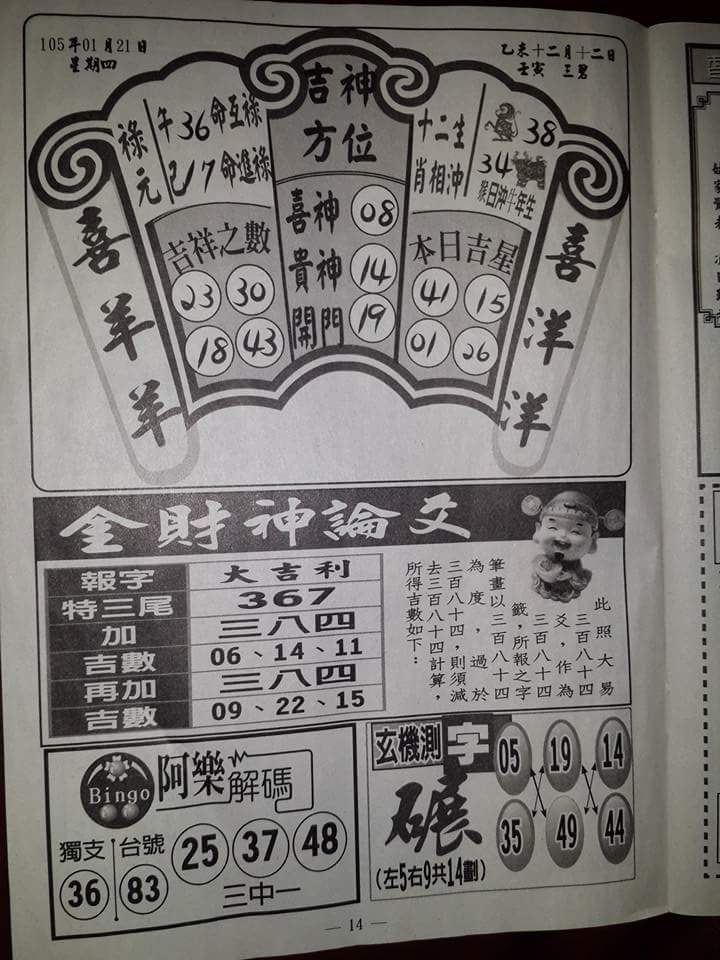 105年01月21日
星期四
乙未十二月十二日
壬寅 三碧
吉神
方位
喜神 08
貴神 14
開門 19
祿元
午36命互祿
巳17命進祿
吉祥之數
23 30
18 43
十二生
肖相沖
38
34
猴日沖牛年生
本日吉星
41 15
01 26
喜羊羊
喜洋洋
金財神論爻
報字 大吉利
特三尾 367
加 三八四
吉數 06、14、11
再加 三八四
吉數 09、22、15
此照大易
三百八十四
爻,作為
三百八十四
籤,所報之字
筆畫以三百八十四
為度,過於
三百八十四,則須減
去三百八十四計算,
所得吉數如下:
Bingo
阿樂解碼
獨支 台號
36 83
25 37 48
三中一
玄機測字
碾
(左5右9共14劃)
05 19 14
35 49 44
— 14 —